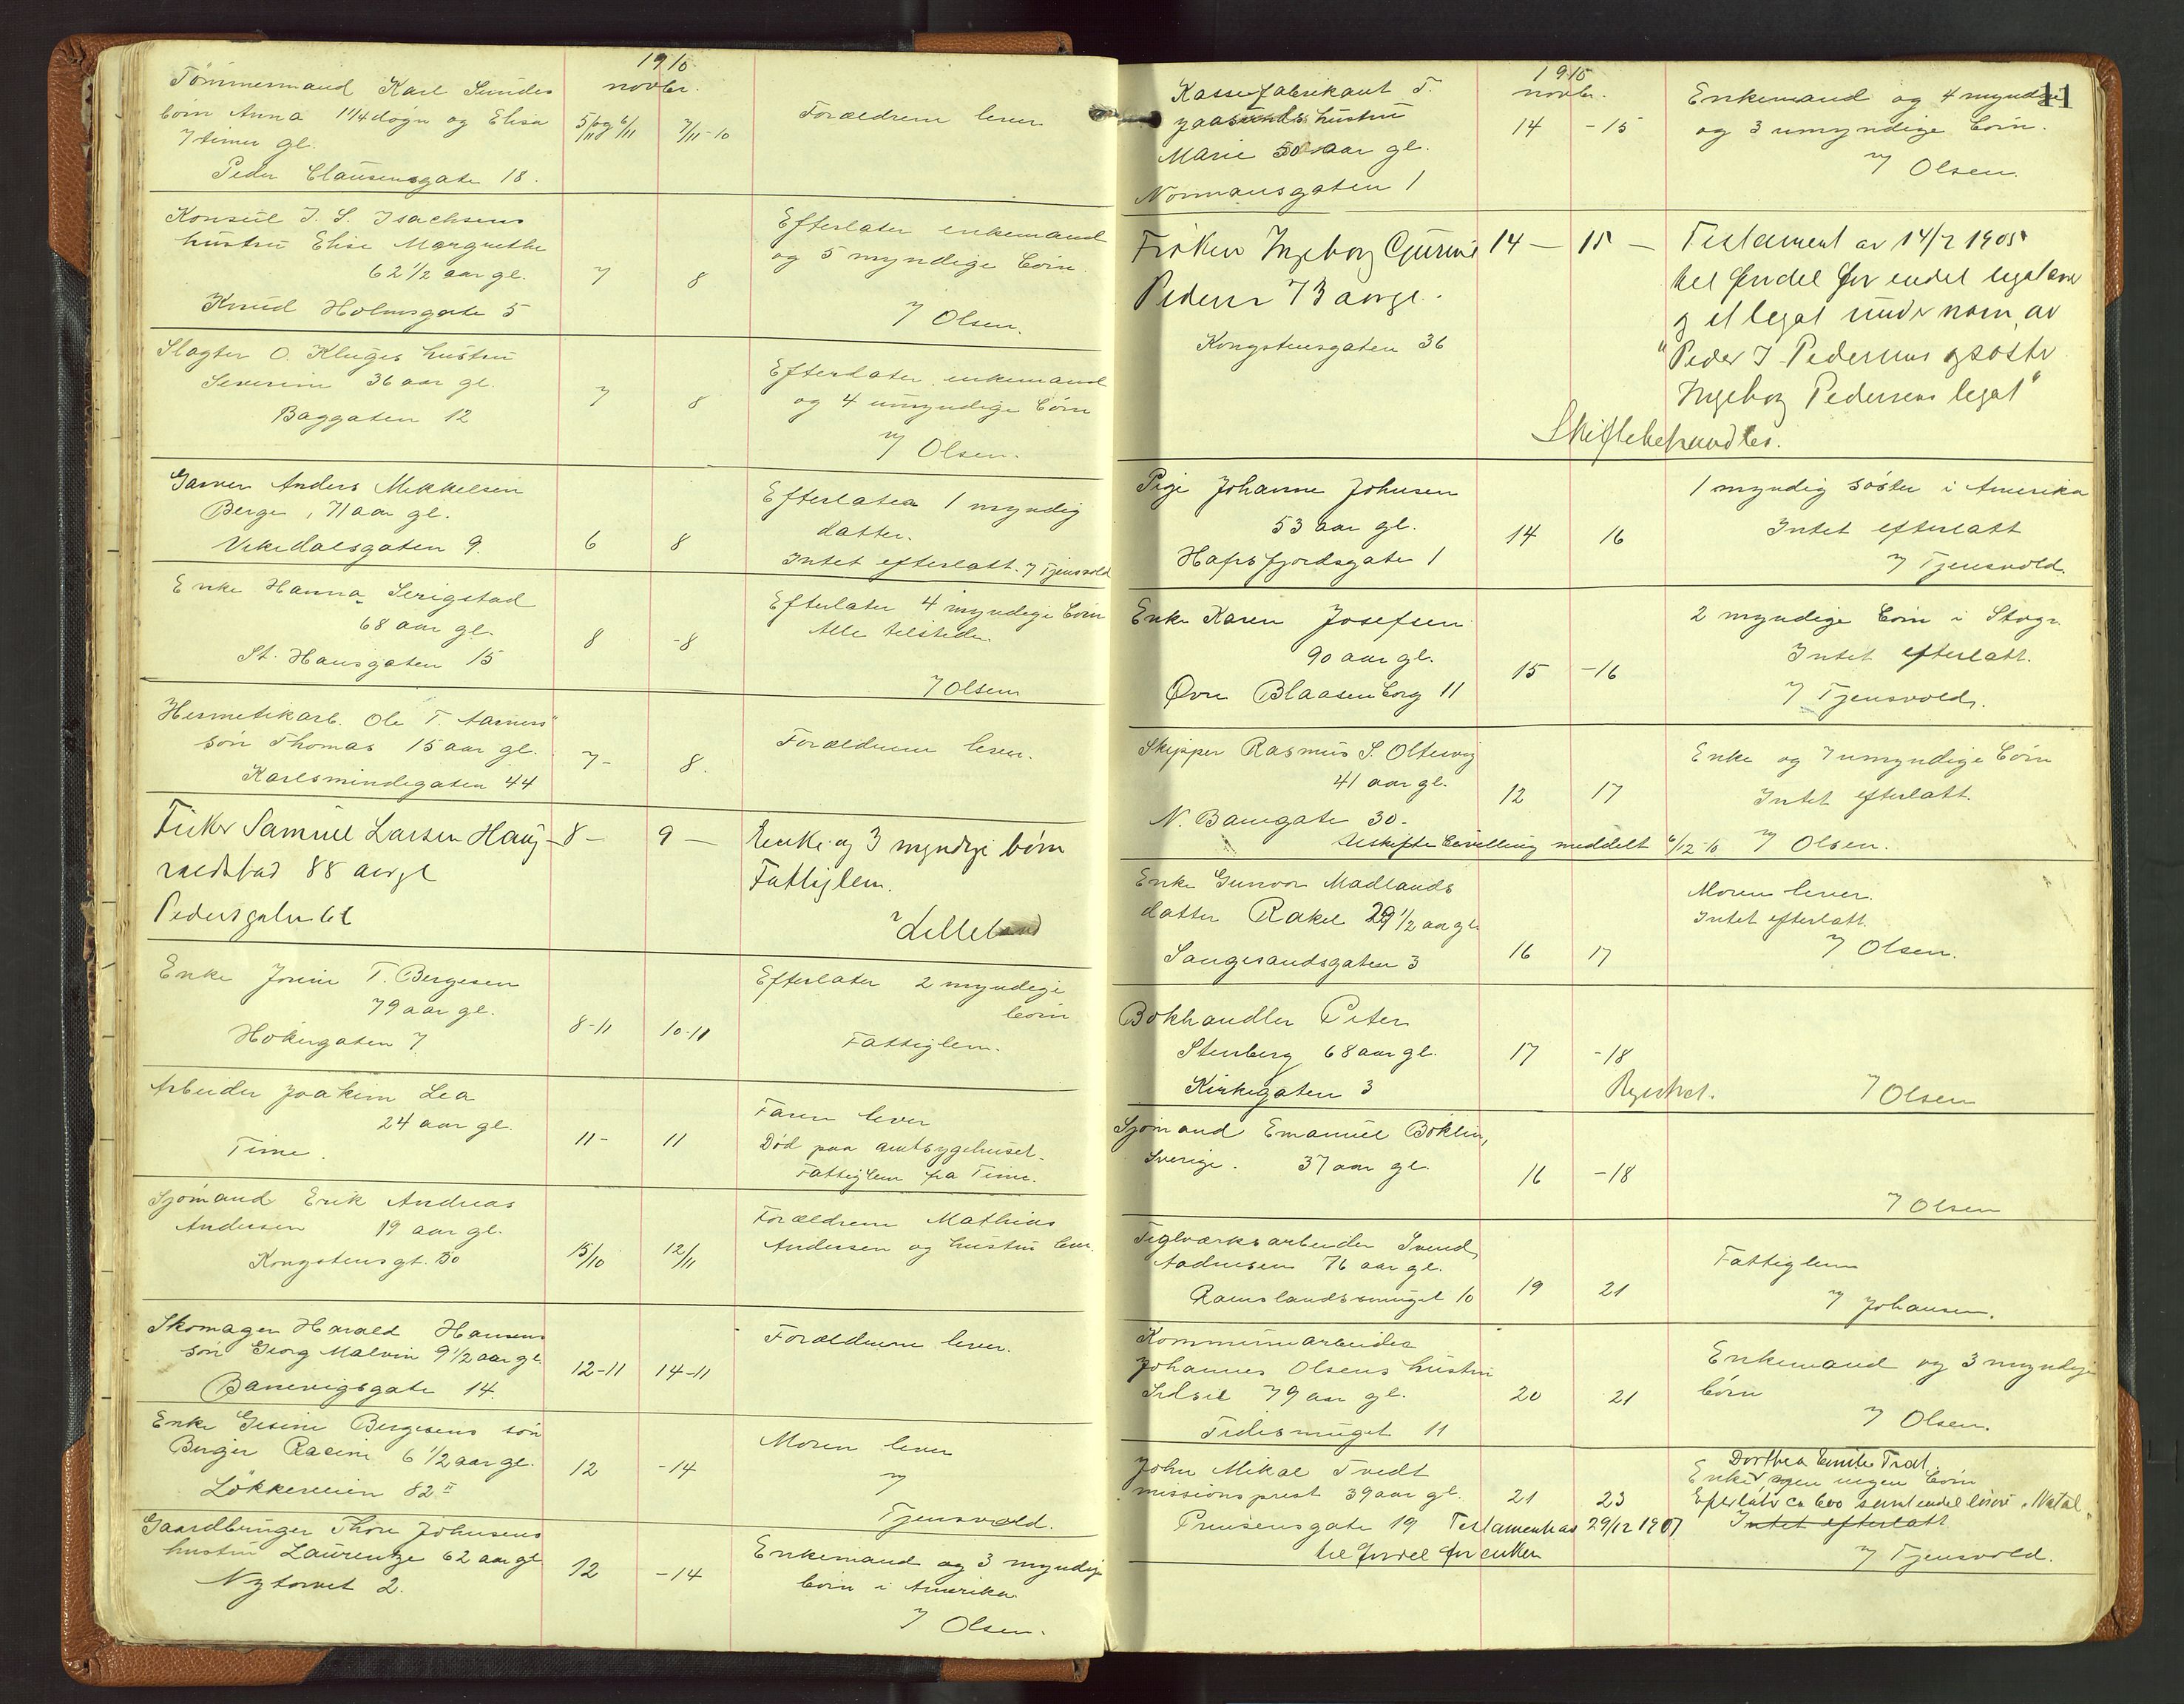 1910
novbr.
Tömmermand Karl Sundes
börn Anna 1 1/4 døgn og Elisa
7 timer gl.
Peder Clausensgate 18.
5/11 og 6/11
7/11-10
Forældrene lever
Konsul I. S. Isachsens
hustru Elise Margrethe
62 1/2 aar gl.
Knud Holmsgate 5
7
8
Efterlater enkemand
og 5 myndige börn.
7 Olsen.
Slagter O. Kluges hustru
Severine 36 aar gl.
Baggaten 12
7
8
Efterlater enkemand
og 4 umyndige börn
7 Olsen.
Garver Anders Mikkelsen
Berge, 71 aar gl.
Vikedalsgaten 9.
6
8
Efterlater 1 myndig
datter.
Intet efterlatt. 7 Tjensvold
Enke Hanna Serigstad
68 aar gl.
St. Hansgaten 15
8
-8
Efterlater 4 myndige börn
Alle tilstede.
7 Olsen
Hermetikarb. Ole T. Aarness'
sön Thomas 15 aar gl.
Karlsmindegaten 44
7-
8.
Forældrene lever.
Fisker Samuel Larsen Haug-
valdstad 88 aar gl
Pedersgaten 66
8-
9 —
Enke og 3 myndige börn
Fattiglem.
7 Lilleland
Enke Jorine T. Bergesen
79 aar gl.
Hökergaten 7.
8-11
10-11
Efterlater 2 myndige
börn
Fattiglem.
Arbeider Joakim Lea
24 aar gl.
Time.
11-
11
Faren lever
Död paa amtssygehuset.
Fattiglem fra Time.
Sjömand Erik Andreas
Andersen 19 aar gl.
Kongstensgt. 50
15/10
12/11
Forældrene Mathias
Andersen og hustru lever.
Skomager Harald Hansens
sön Georg Malvin 9 1/2 aar gl.
Banevigsgate 14.
12-11
14-11
Forældrene lever.
Enke Gesine Bergesens sön
Berger Racine 6 1/2 aar gl.
Lökkeveien 82 II
12
-14
Moren lever
7
Tjensvold.
Gaardbruger Thore Johnsens
hustru Laurentze 62 aar gl
Nytorvet 2.
12
-14
Enkemand og 3 myndige
börn i Amerika
7 Olsen.
41
1910
novbr.
Kassefabrikant T.
Jaasunds hustru
Marie 50 aar gl.
Normansgaten 1
14
-15
Enkemand og 4 myndige
og 3 umyndige börn.
7 Olsen.
Fröken Ingeborg Gurine
Pedersen 73 aar gl.
Kongstensgaten 36
14 —
15 —
Testament av 14/7 1905
til fordel for endel legatarer
og et legat under navn av
"Peder I Pedersens og söster
Ingeborg Pedersens legat"
Skiftebehandles.
Pige Johanne Johnsen
53 aar gl.
Hafrsfjordsgate 1
14
16
1 myndig söster i Amerika
Intet efterlatt
7 Tjensvold.
Enke Karen Josefsen
90 aar gl.
Øvre Blaasenborg 11
15
-16
2 myndige börn i Stvgr.
Intet efterlatt.
7 Tjensvold.
Skipper Rasmus S. Oltesvig
41 aar gl.
N. Banegate 30.
12
17
Enke og 7 umyndige börn
Intet efterlatt.
Uskiftebevilling meddelt 6/12-10 7 Olsen.
Enke Gunvor Madlands
datter Rakel 29 1/2 aar gl.
Saugesandsgaten 3
16
17
Moren lever.
Intet efterlatt.
7 Olsen.
Bokhandler Peter
Stenberg 68 aar gl.
Kirkegaten 3
17
-18
Registret.
7 Olsen
Sjömand Emanuel Böklin,
Sverige. 37 aar gl.
16
-18
7 Olsen
Teglværksarbeider Svend
Aadnesen 76 aar gl.
Ramslandssmuget 10
19
21
Fattiglem
7 Johansen.
Kommunearbeider
Johannes Olsens hustru
Sidsel 79 aar gl.
Tidesmuget 11
20
21
Enkemand og 3 myndige
börn
7 Olsen.
John Mikal Tvedt
missionsprest 39 aar gl.
Prinsensgate 19
21
23
Testamentas 29/12 1907
til fordel for enken
Dorthea Emilie Tvedt.
Enke men ingen börn
Efterlatt ca 600 samt endel lösöre i Natal.
Intet efterlatt
7 Tjensvold.